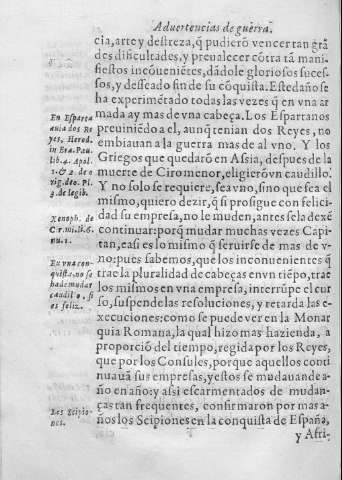 Aduertencias de guerra.
cia, arte y destreza, q̃ pudierõ vencer tan grã
des dificultades, y preualecer cõtra tã mani-
fiestos incõueniẽtes, dãdole gloriosos suces-
sos, y desseado fin de su cõquista. Este daño se
ha experimẽtado todas las vezes q̃ en vna ar
mada ay mas de vna cabeça. Los Espartanos
preuiniẽdo a el, aunq̃ tenian dos Reyes, no
embiauan a la guerra mas de al vno. Y los
Griegos que quedarõ en Assia, despues de la
muerte de Ciro menor, eligierõ vn caudillo.
Y no solo se requiere, sea vno, sino que sea el
mismo, quiero dezir, q̃ si prosigue con felici-
dad su empresa, no le muden, antes se la dexẽ
continuar: porq̃ mudar muchas vezes Capi-
tan, casi es lo mismo q̃ seruirse de mas de v-
no: pues sabemos, que los inconuenientes q̃
trae la pluralidad de cabeças en vn tiẽpo, trae
los mismos en vna empresa, interrũpe el cur
so, suspende las resoluciones, y retarda las e-
xecuciones: como se puede ver en la Monar
quia Romana, la qual hizo mas hazienda, a
proporciõ del tiempo, regida por los Reyes,
que por los Consules, porque aquellos conti
nuauã sus empresas, y estos se mudauan de a-
ño en año: y assi escarmentados de mudan-
ças tan frequentes, confirmaron por mas a-
ños los Scipiones en la conquista de España,
y Afri-
En Esparta
auia dos Re
yes, Herod.
in Era. Pau.
lib. 4. Apol.
1. & 2. de o
rig. deo. Pl.
3. de legib.
Xenoph. de
Cr. mi. li. 6.
nu. 1.
En vna con-
quista no se
ha de mudar
caudillo, si
es feliz.
Los Scipio-
nes.